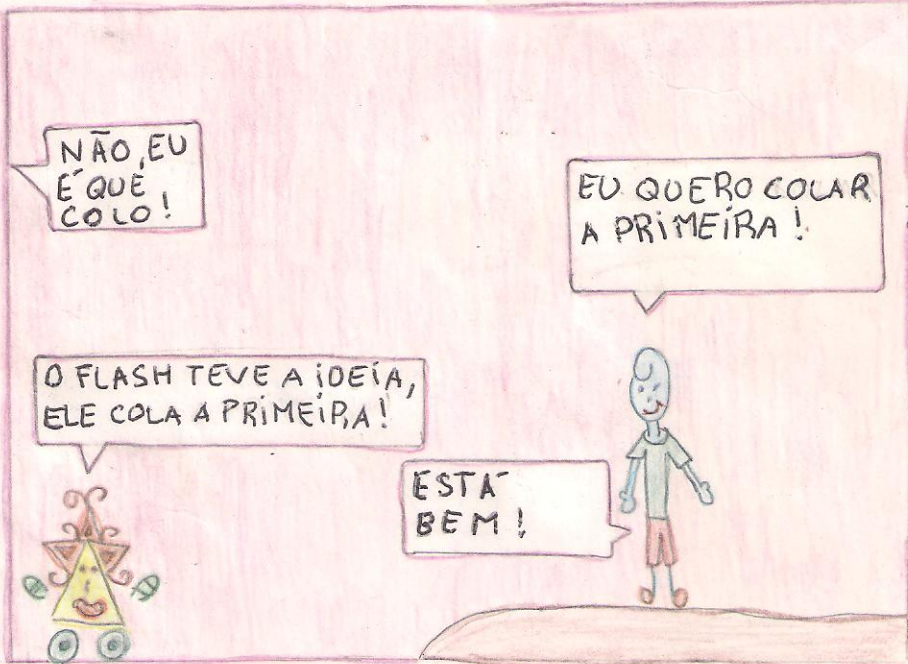 NÃO, EU
É QUE
COLO!
EU QUERO COLAR
A PRIMEIRA!
O FLASH TEVE A IDEIA,
ELE COLA A PRIMEIRA!
ESTÁ
BEM!